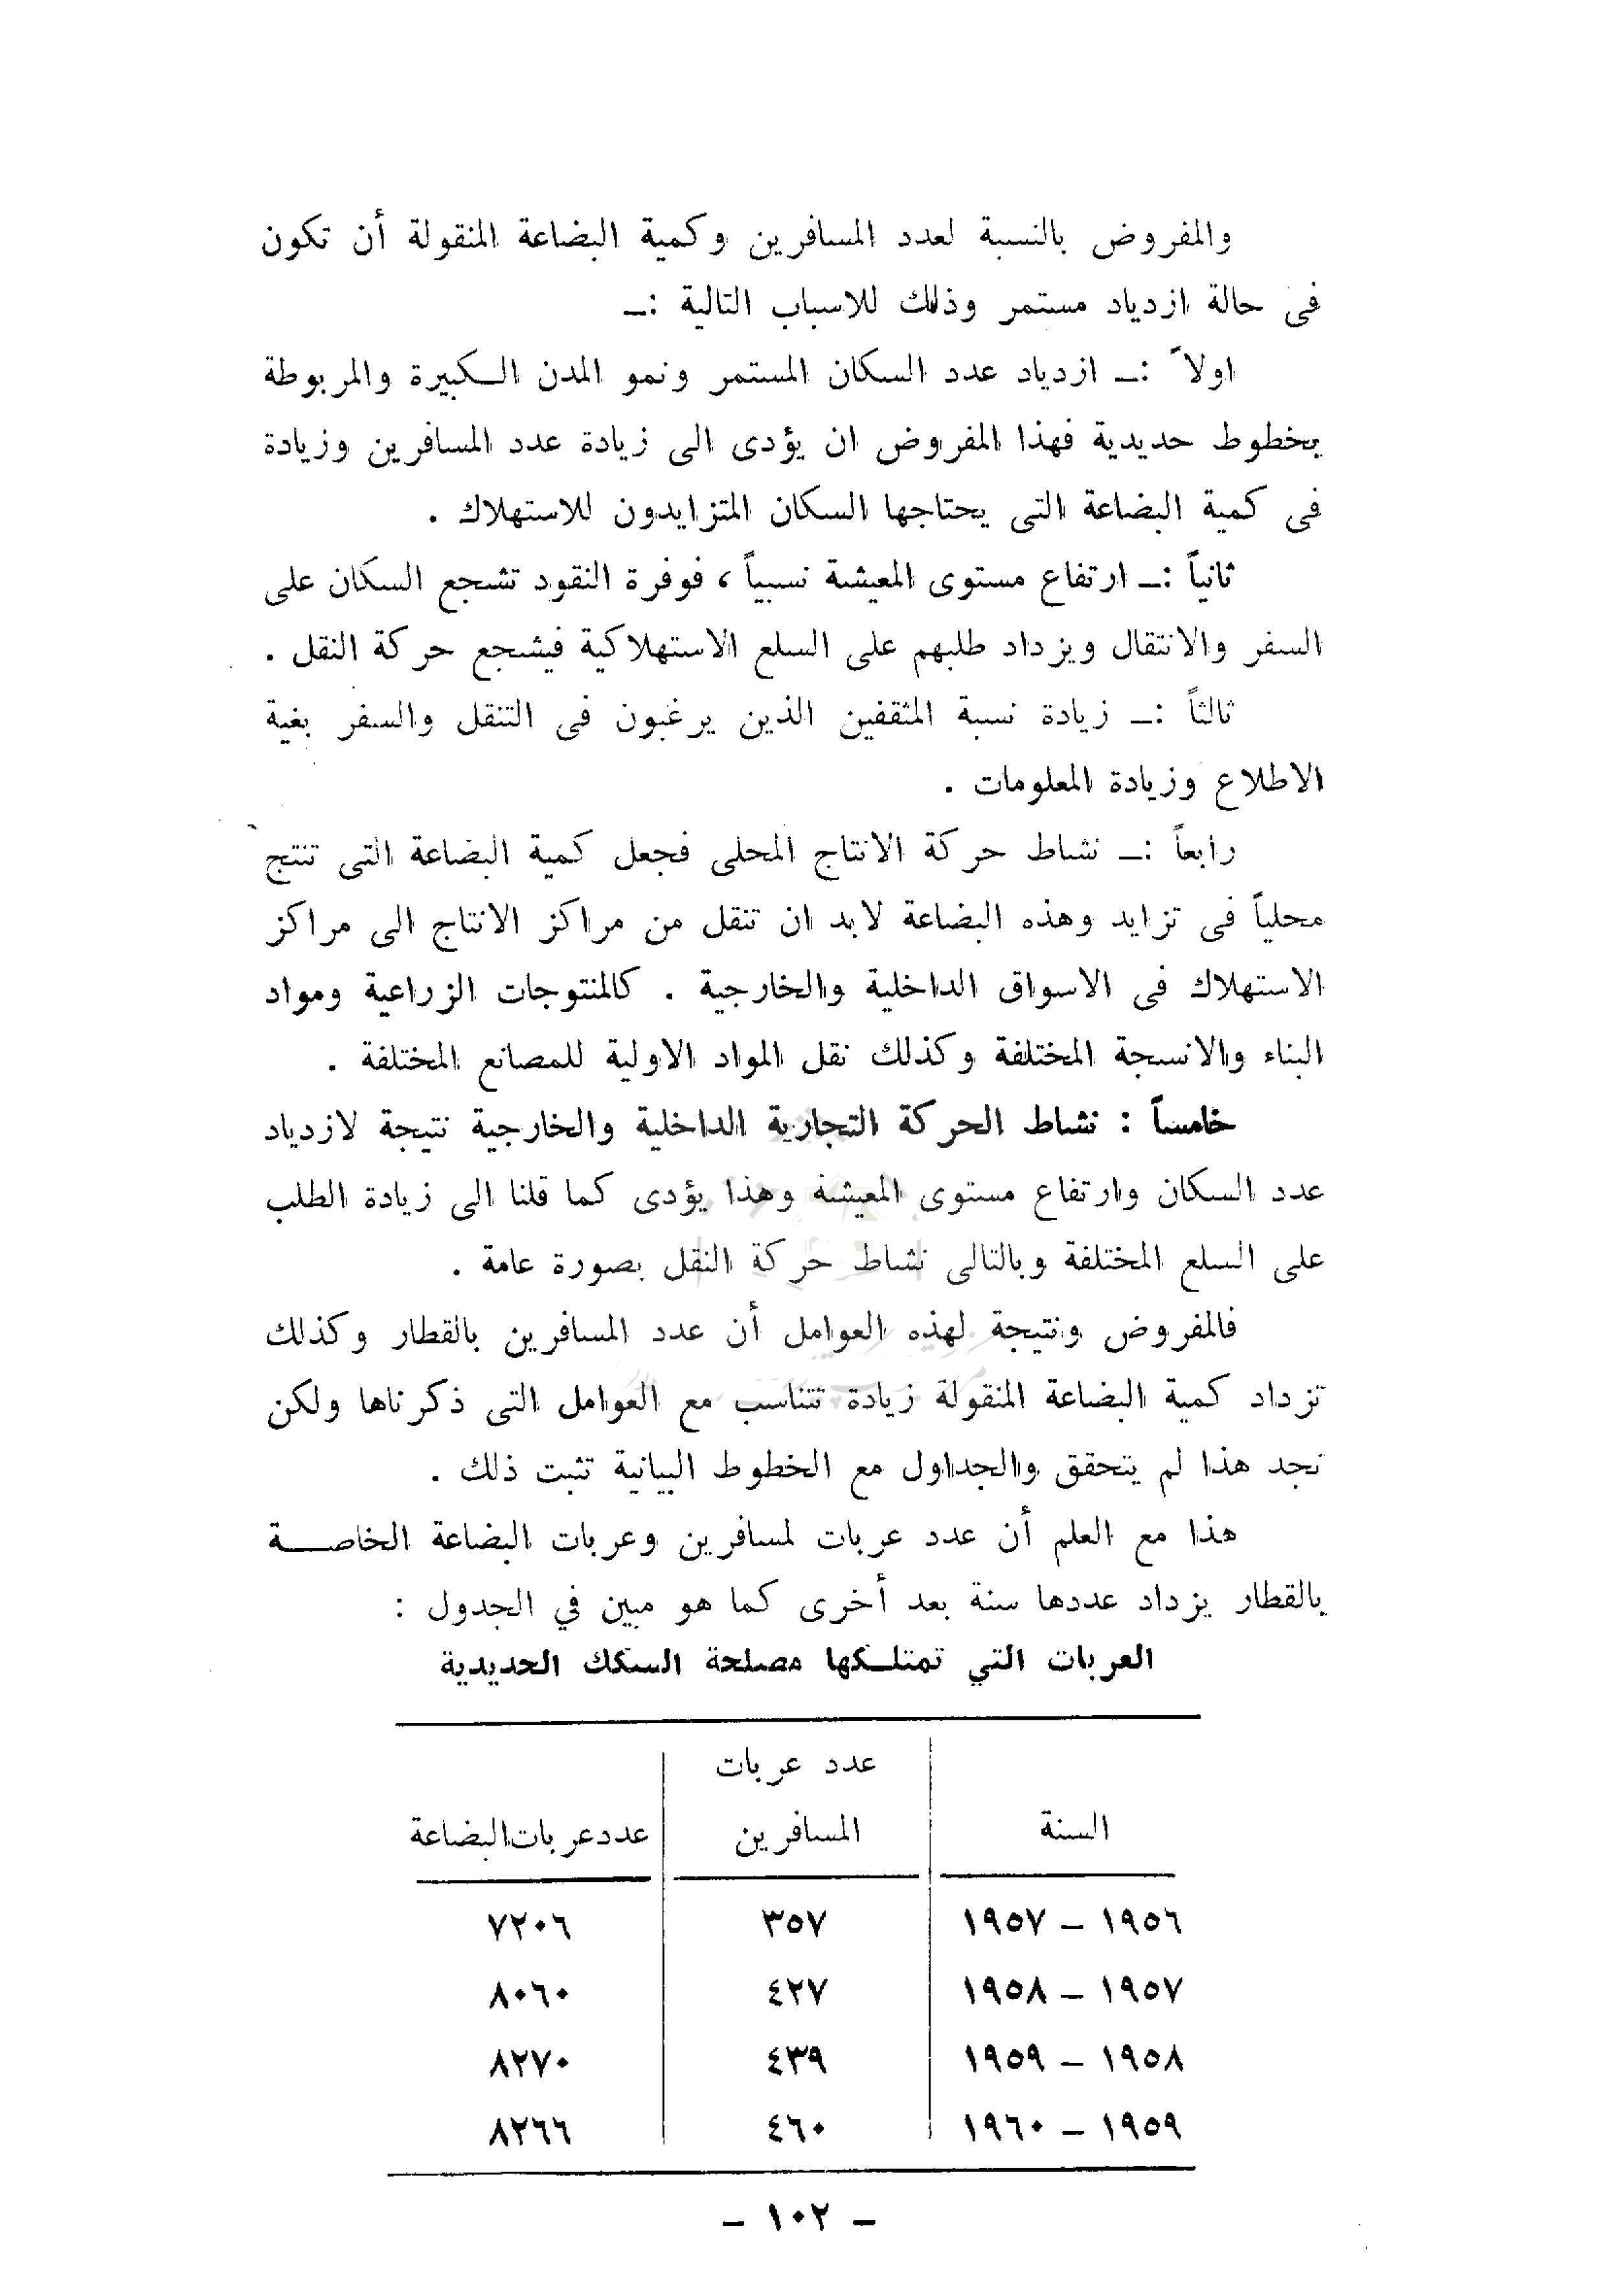 والمفروض بالنسبة لعدد المسافرين وكمية البضاعة المنقولة أن تكون
فى حالة ازدياد مستمر وذلك للاسباب التالية :ـ
اولاً :ـ ازدياد عدد السكان المستمر ونمو المدن الـكبيرة والمربوطة
بخطوط حديدية فهذا المفروض ان يؤدى الى زيادة عدد المسافرين وزيادة
فى كمية البضاعة التى يحتاجها السكان المتزايدون للاستهلاك .
ثانياً :ـ ارتفاع مستوى المعيشة نسبياً ، فوفرة النقود تشجع السكان على
السفر والانتقال ويزداد طلبهم على السلع الاستهلاكية فيشجع حركة النقل .
ثالثاً :ـ زيادة نسبة المثقفين الذين يرغبون فى التنقل والسفر بغية
الاطلاع وزيادة المعلومات .
رابعاً :ـ نشاط حركة الانتاج المحلى فجعل كمية البضاعة التى تنتج
محلياً فى تزايد وهذه البضاعة لابد ان تنقل من مراكز الانتاج الى مراكز
الاستهلاك فى الاسواق الداخلية والخارجية . كالمنتوجات الزراعية ومواد
البناء والانسجة المختلفة وكذلك نقل المواد الاولية للمصانع المختلفة .
خامساً : نشاط الحركة التجارية الداخلية والخارجية نتيجة لازدياد
عدد السكان وارتفاع مستوى المعيشة وهذا يؤدى كما قلنا الى زيادة الطلب
على السلع المختلفة وبالتالى نشاط حركة النقل بصورة عامة .
فالمفروض ونتيجة لهذه العوامل أن عدد المسافرين بالقطار وكذلك
تزداد كمية البضاعة المنقولة زيادة تتناسب مع العوامل التى ذكرناها ولكن
نجد هذا لم يتحقق والجداول مع الخطوط البيانية تثبت ذلك .
هذا مع العلم أن عدد عربات لمسافرين وعربات البضاعة الخاصـــة
بالقطار يزداد عددها سنة بعد أخرى كما هو مبين في الجدول :
العربات التي تمتلـكها مصلحة السكك الحديدية
عدد عربات
السنة المسافرين عددعرباتالبضاعة
١٩٥٦ – ١٩٥٧ ٣٥٧ ٧٢٠٦
١٩٥٧ – ١٩٥٨ ٤٢٧ ٨٠٦٠
١٩٥٨ – ١٩٥٩ ٤٣٩ ٨٢٧٠
١٩٥٩ – ١٩٦٠ ٤٦٠ ٨٢٦٦
– ١٠٢ –